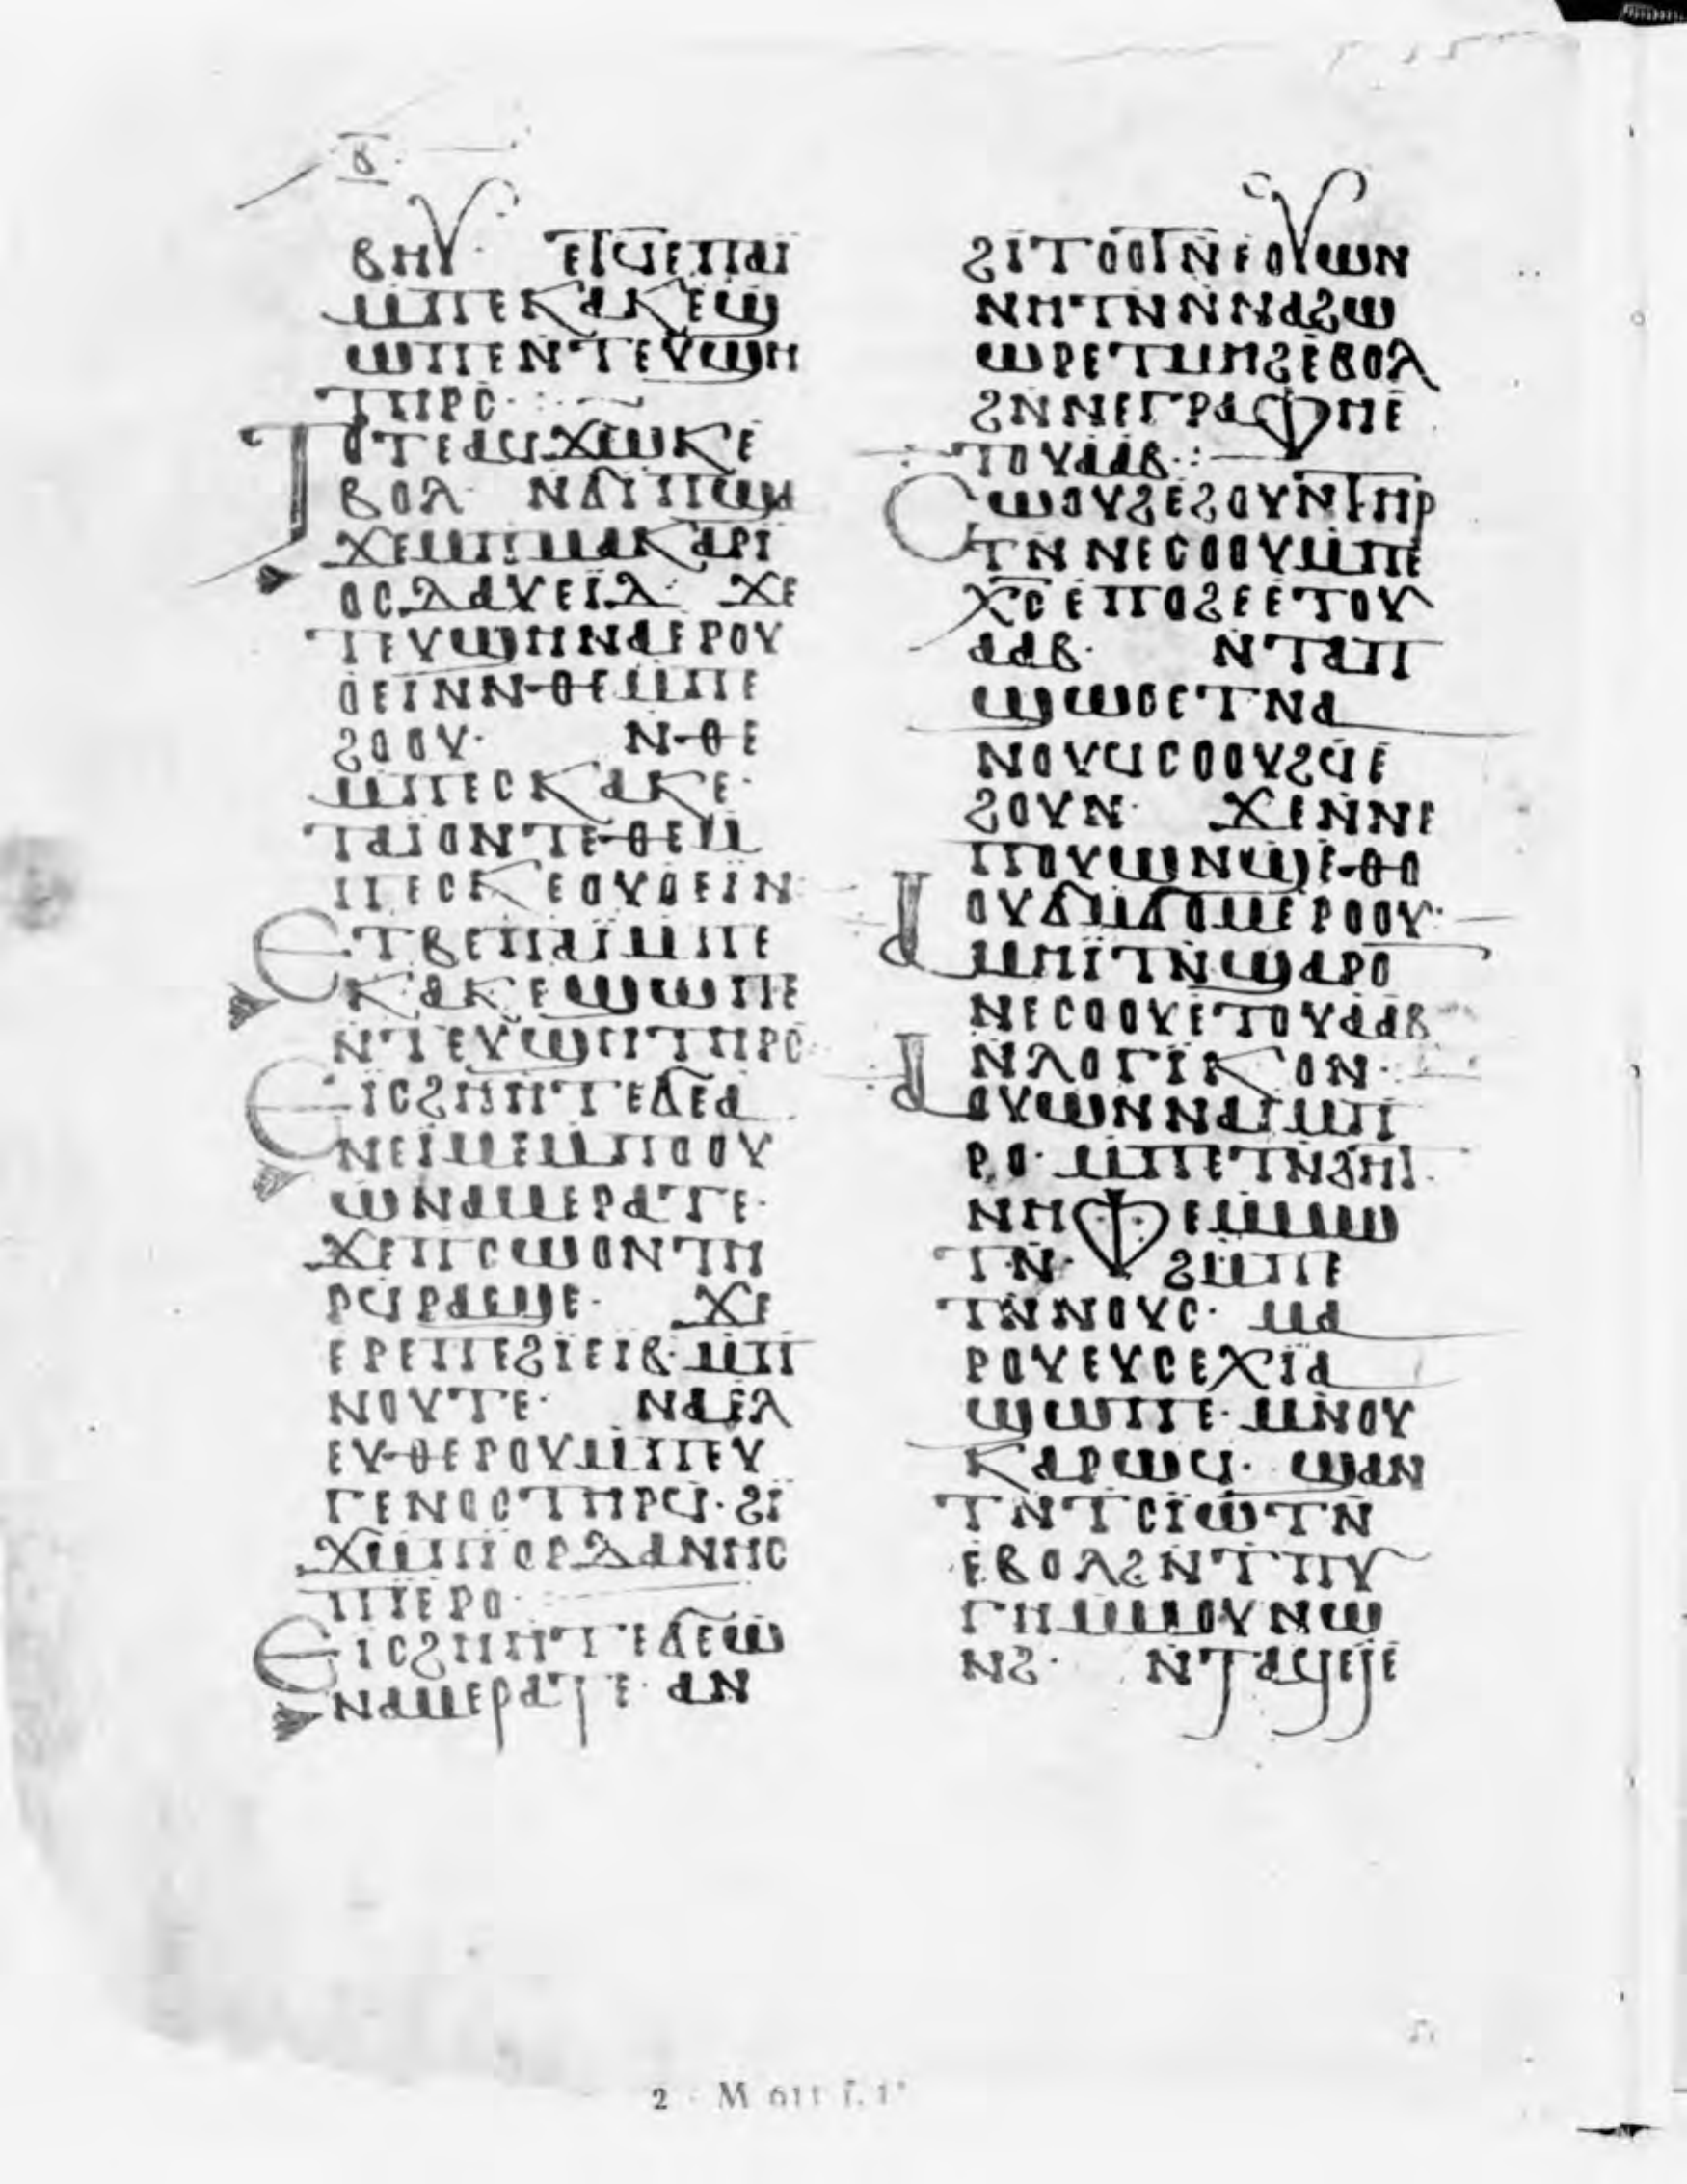 ⲃ̅
ⲃⲏⲩ· ⲉⲧϥⲉⲡⲁⲓ̈
ⲙ̅ⲡⲉⲕⲁⲕⲉϣ
ⲱⲡⲉⲛⲧⲉⲩϣⲏ
ⲧⲏⲣⲥ·
ⲧⲟⲧⲉⲁϥϫⲱⲕⲉ
ⲃⲟⲗ ⲛϭⲓⲡϣⲁ
ϫⲉⲙⲡⲙⲁⲕⲁⲣⲓ
ⲟⲥⲇⲁⲩⲉⲓⲇ· ϫⲉ
ⲧⲉⲩϣⲏⲛⲁⲉⲣⲟⲩ
ⲟⲉⲓⲛⲛⲑⲉⲙⲡⲉ
ϩⲟⲟⲩ· ⲛⲑⲉ
ⲙⲡⲉⲥⲕⲁⲕⲉ·
ⲧⲁⲓ̈ⲟⲛⲧⲉⲑⲉⲙ
ⲡⲉⲥⲕⲉⲟⲩⲟⲉⲓⲛ
ⲉⲧⲃⲉⲡⲁⲓ̈ⲙⲡⲉ
ⲕⲁⲕⲉϣⲱⲡⲉ
ⲛ̅ⲧⲉⲩϣⲏⲧⲏⲣⲥ
ⲉⲓⲥϩⲏⲏⲧⲉϭⲉⲁ
ⲛⲉⲓⲙⲉⲙⲡⲟⲟⲩ
ⲱⲛⲁⲙⲉⲣⲁⲧⲉ·
ϫⲉⲡⲥⲱⲟⲛⲧⲏ
ⲣϥⲣⲁϣⲉ· ϫⲉ
ⲉⲣⲉⲡⲉϩⲓ̈ⲉⲓⲃ·ⲙ̅ⲡ
ⲛⲟⲩⲧⲉ· ⲛⲁⲉⲗ
ⲉⲩⲑⲉⲣⲟⲩⲙⲡⲉⲩ
ⲅⲉⲛⲟⲥⲧⲏⲣϥ·ϩⲓ̈
ϫⲙⲡⲓⲟⲣⲇⲁⲛⲏⲥ
ⲡⲓ̈ⲉⲣⲟ
ⲉⲓⲥϩⲏⲏⲧⲉϭⲉⲱ
ⲛⲁⲙⲉⲣⲁⲧⲉ· ⲁⲛ
ϩⲓⲧⲟⲟⲧⲛ̅ⲉⲟⲩⲱⲛ
ⲛⲏⲧⲛⲛⲛⲁϩⲱ
ⲱⲣⲉⲧⲙⲏϩⲉⲃⲟⲗ
ϩⲛⲛⲉⲅⲣⲁⲫⲏⲉ
ⲧⲟⲩⲁⲁⲃ·:
ⲥⲱⲟⲩϩⲉϩⲟⲩⲛⲧⲏⲣ
ⲧⲛ ⲛⲉⲥⲟⲟⲩⲙ̅ⲡⲉ
ⲭ̅ⲥ̅ⲉⲡⲟϩⲉⲉⲧⲟⲩ
ⲁⲁⲃ· ⲛⲧⲁⲡ
ϣⲱⲥⲉⲧⲛⲁ
ⲛⲟⲩϥⲥⲟⲟⲩϩϥⲉ
ϩⲟⲩⲛ· ϫⲉⲛⲛⲉ
ⲡⲟⲩⲱⲛϣⲉⲑⲟ
ⲟⲩϭⲙϭⲟⲙⲉⲣⲟⲟⲩ·
ⲁⲙⲏⲓ̈ⲧⲛ̅ϣⲁⲣⲟ
ⲛⲉⲥⲟⲟⲩⲉⲧⲟⲩⲁⲁⲃ
ⲛⲗⲟⲅⲓⲕⲟⲛ·
ⲁⲟⲩⲱⲛⲛⲁⲓⲙⲡ
ⲣⲟ· ⲙⲡⲉⲧⲛϩⲏⲧ·
ⲛⲏⲫⲉⲙⲙⲱ
ⲧⲛ· ϩⲙⲡⲉ
ⲧⲛⲛⲟⲩⲥ· ⲙⲁ
ⲣⲟⲩⲉⲩⲥⲉⲭⲓⲁ
ϣⲱⲡⲉ· ⲙⲛⲟⲩ
ⲕⲁⲣⲱϥ· ϣⲁⲛ
ⲧⲛⲧⲥⲓ̈ⲱⲧⲛ̅
ⲉⲃⲟⲗϩⲛⲧⲡⲩ
ⲅⲏⲙⲙⲟⲩⲛⲱ
ⲛϩ· ⲛ̅ⲧⲁϥϯϯⲉ
2 M 611 f. 1ᵛ